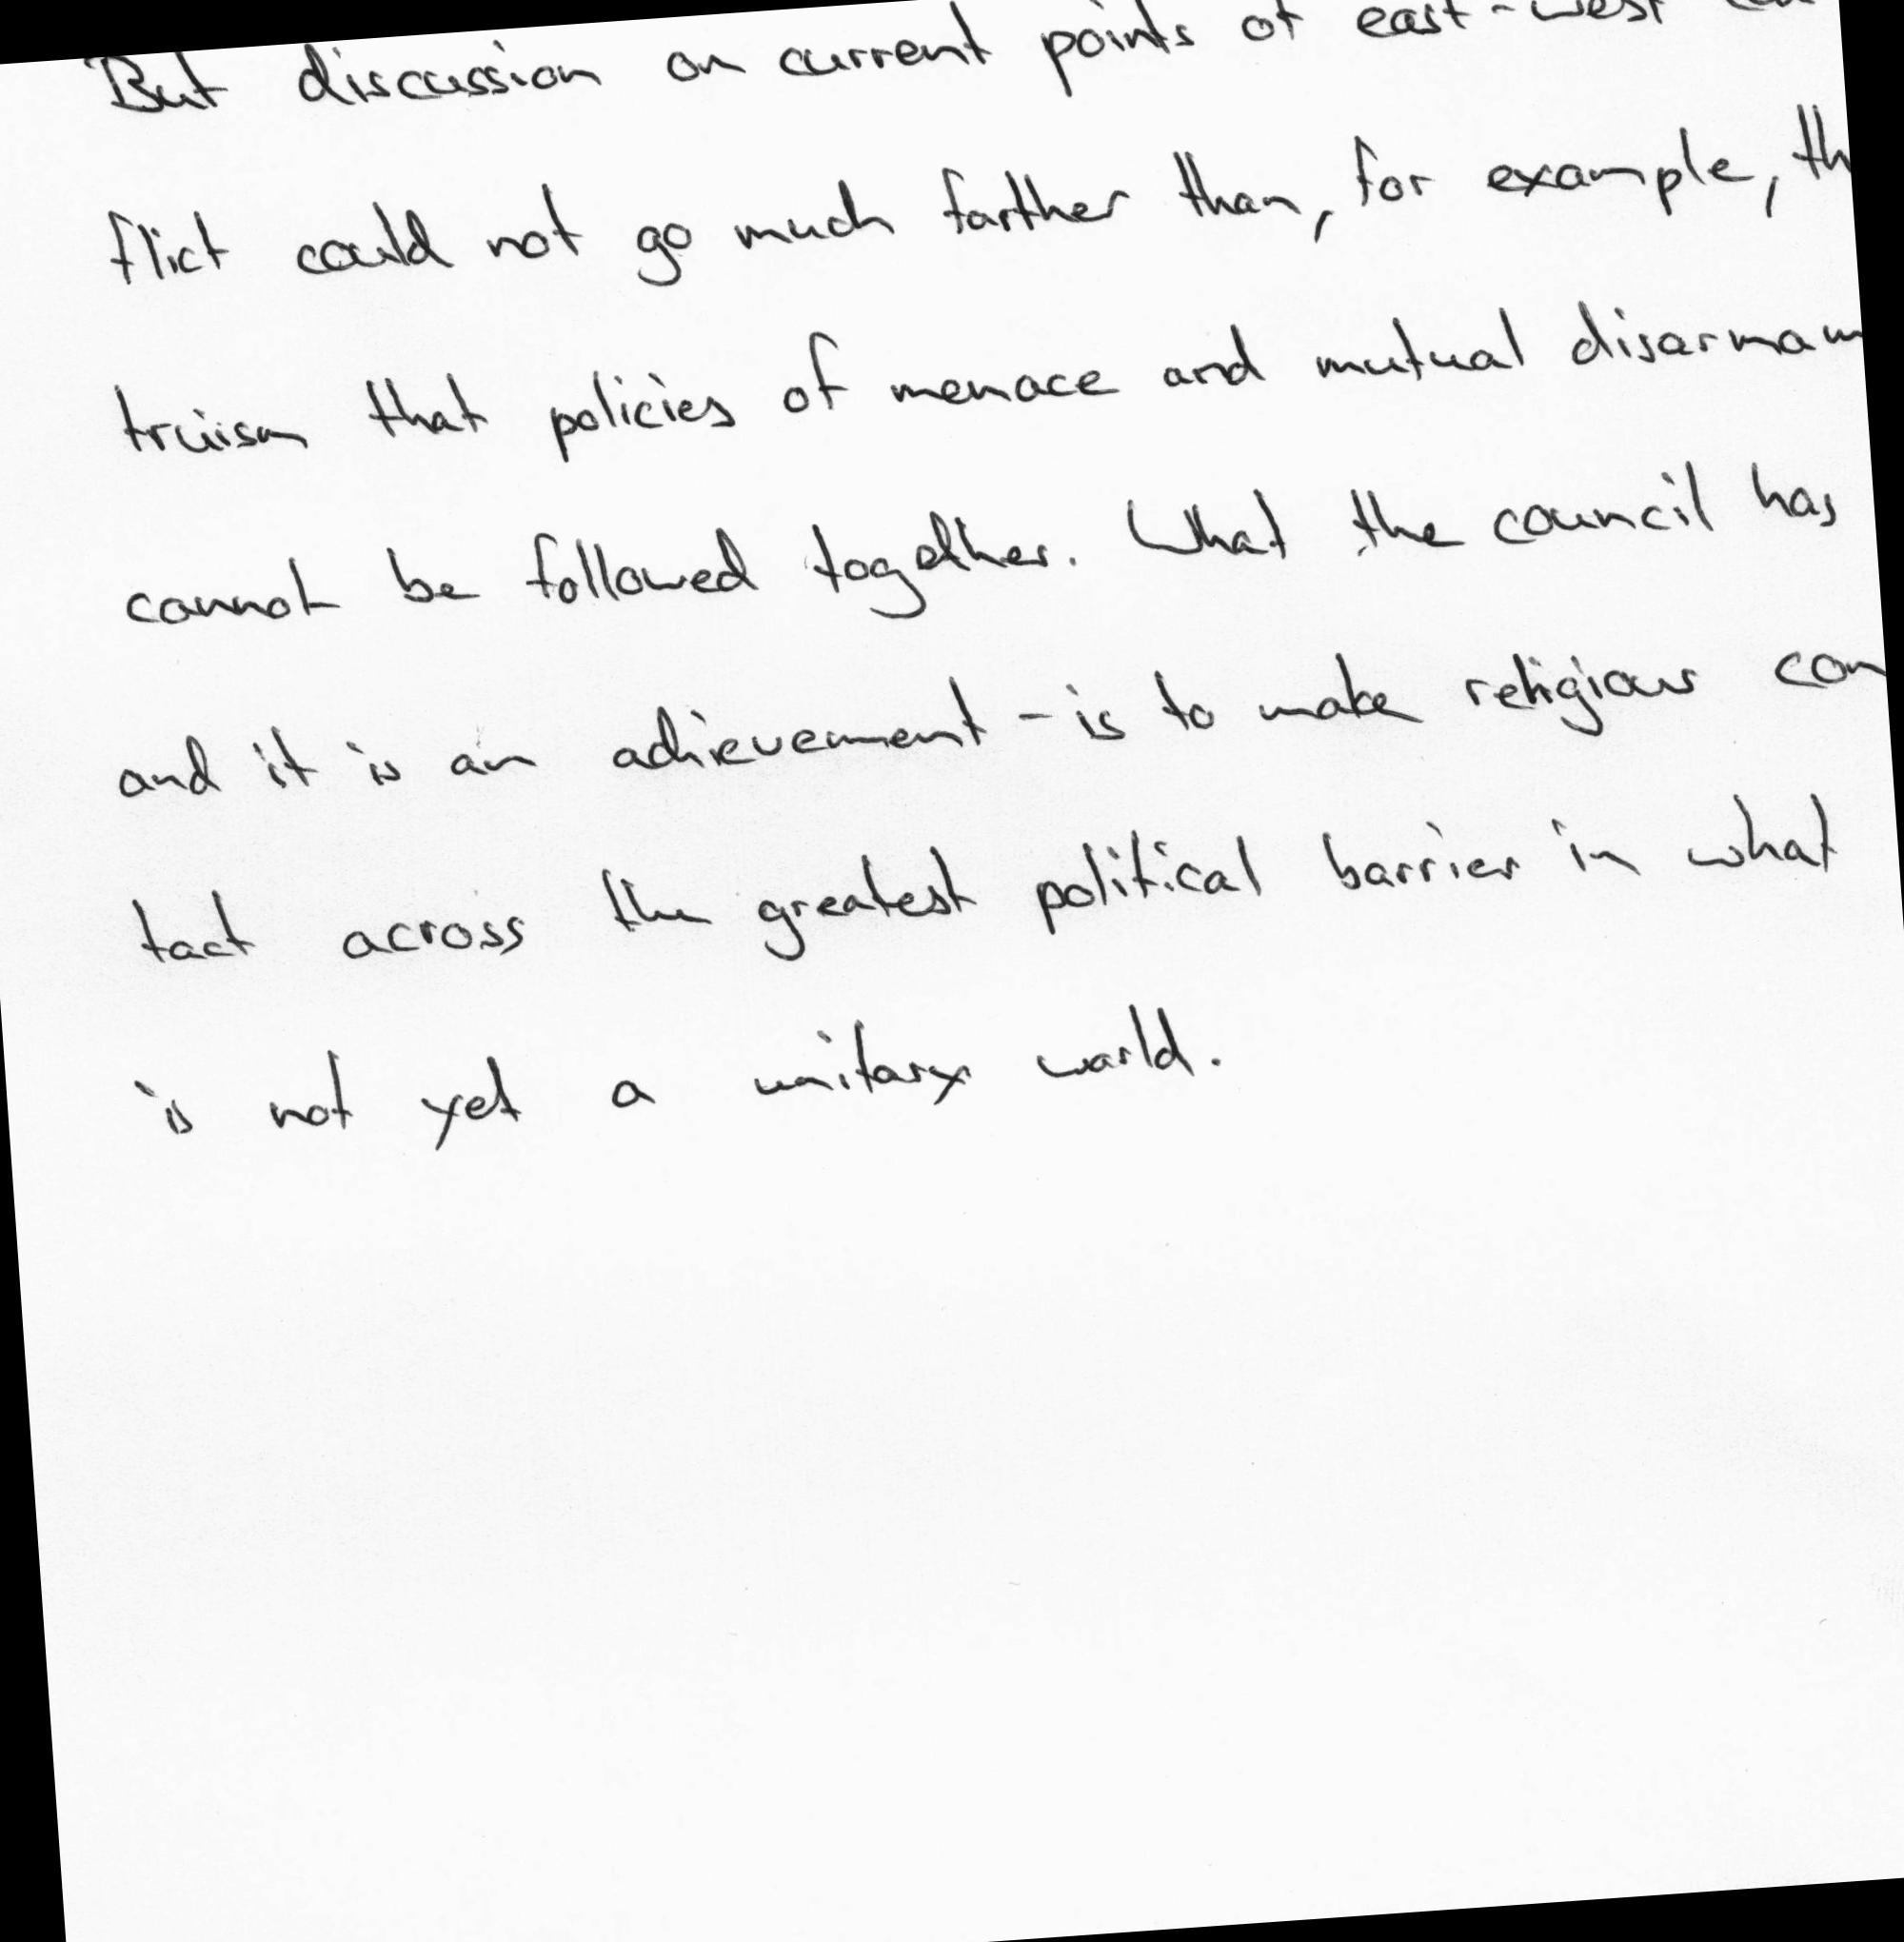 But discussion on current points of east-west
flict could not go much farther than, for example,
truism that policies of menace and mutual
cannot be followed together. What the council has
and it is an achievement - is to make religious con
tact across the greatest political barrier in what
is not yet a unitary world.